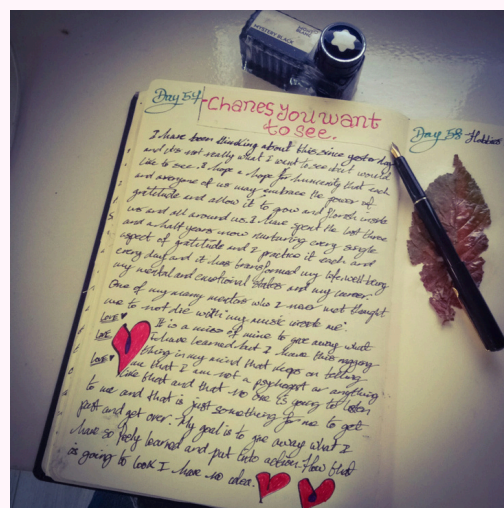 MYSTERY BLACK
Day 57
-Chanes you want
to see.
I have been thinking about this since yesterday
and do not really what I want to see but would
like to see. I hope a hope for humanity that each
and everyone of us may embrace the power of
gratitude and allow it to grow and flourish inside
us and all around us. I have spent the last three
and a half years now nurturing every single
aspect of gratitude and I practice it each and
every day and it has transformed my life, well being
my mental and emotional states and my career.
One of my many mentors who I never met thought
me to not die with "my music inside me".
LOVE ♥ It is a miss of mine to give away what
LOVE I have learned but I have this nagging
LOVE ♥ thing in my mind that keeps on telling
me that I am not a psychologist or anything
like that and that no one is going to listen
to me and that is just something for me to get
past and get over. My goal is to give away what I
have so freely learned and put into action. How that
is going to look I have no idea.
Day 58 Hobbies